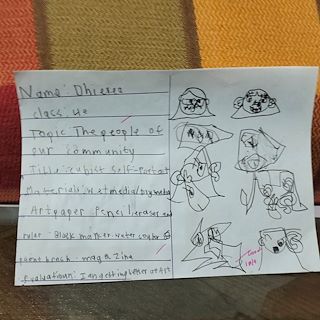 Name: Dhieren
class: 4e
Topic The people of
our community
Title: cubist self-Portrait
Materials: wet media/Dry media
Art paper Pencil eraser and
ruler Black marker water color
paint brush magazine
Evaluatioun: I am getting better at Art